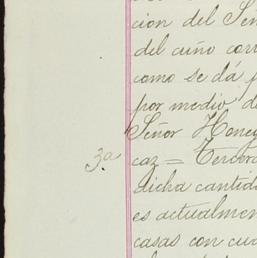 cion del Señ
del cuño corr
como se dá p
por medio d
Señor Heneq
3ª
caz = Tercera
dicha cantida
es actualmen
casas con cua